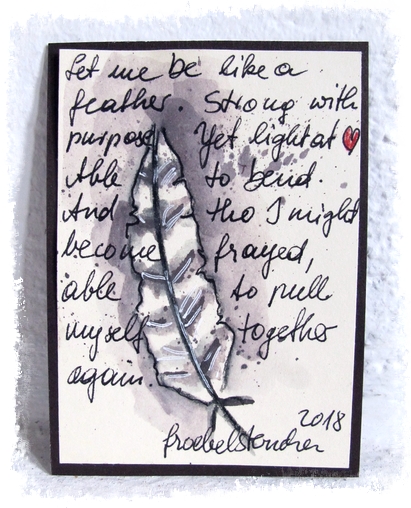 Let me be like a
feather. Strong with
purpose Yet light at ❤
Able to bend.
And, tho I might
become frayed,
able to pull
myself together
again.
2018
froebelsternchen